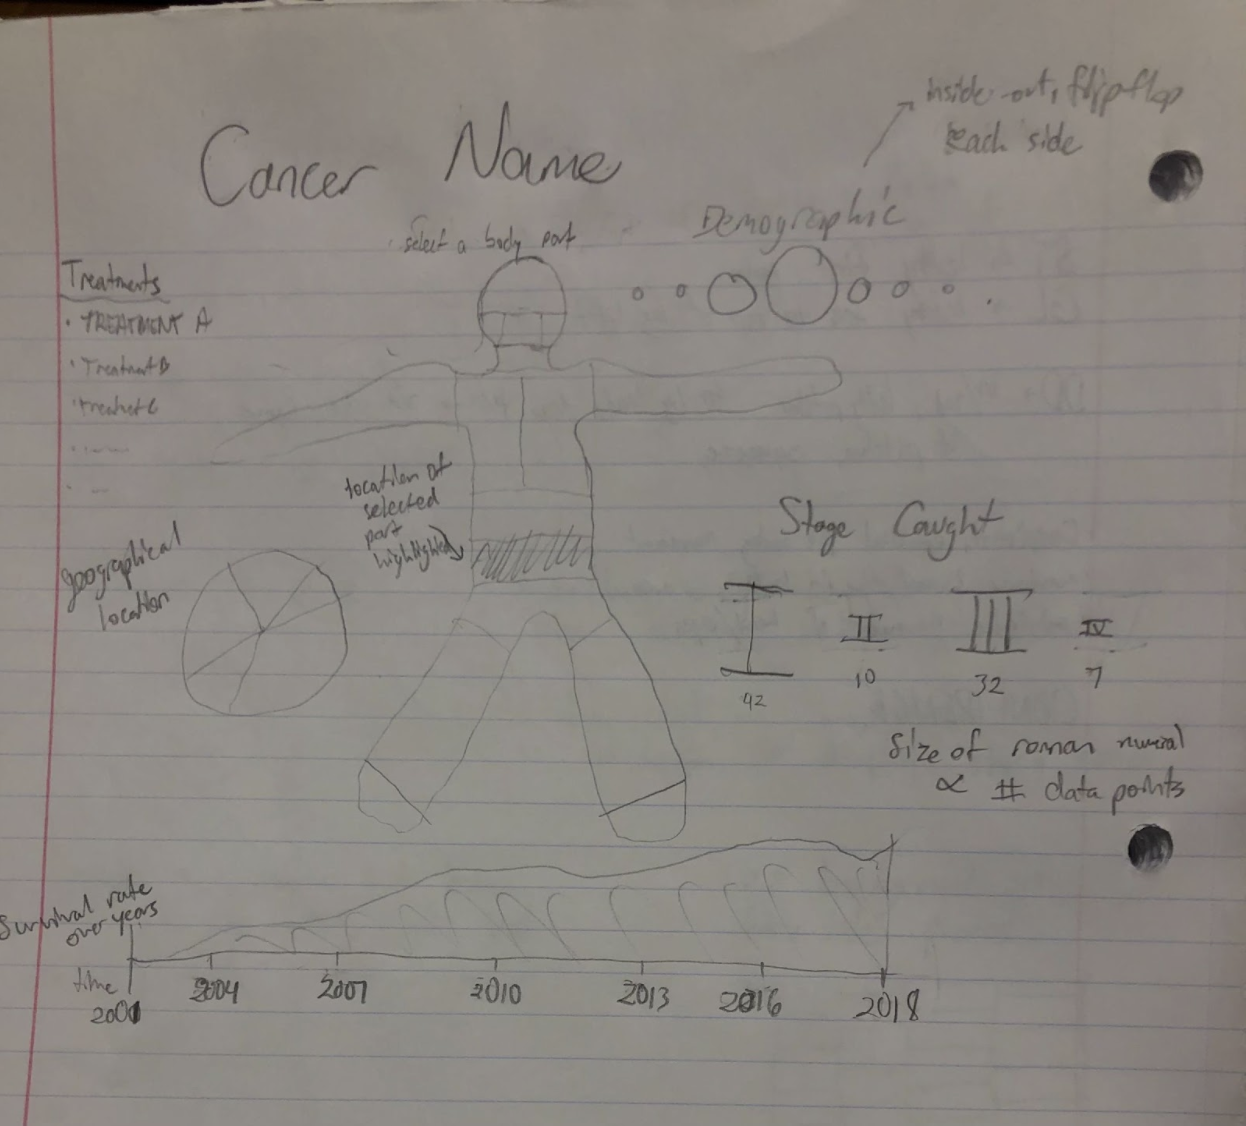 inside-out, flip flop
each side
Cancer Name
select a body part
Demographic
Treatments
• TREATMENT A
• Treatment B
• Treatmet C
location of
selected
part
highlighted
geographical
location
Stage Caught
I II III IV
42 10 32 7
Size of roman numeral
∝ # data points
Survival rate
over years
time
2001 2004 2007 2010 2013 2016 2018